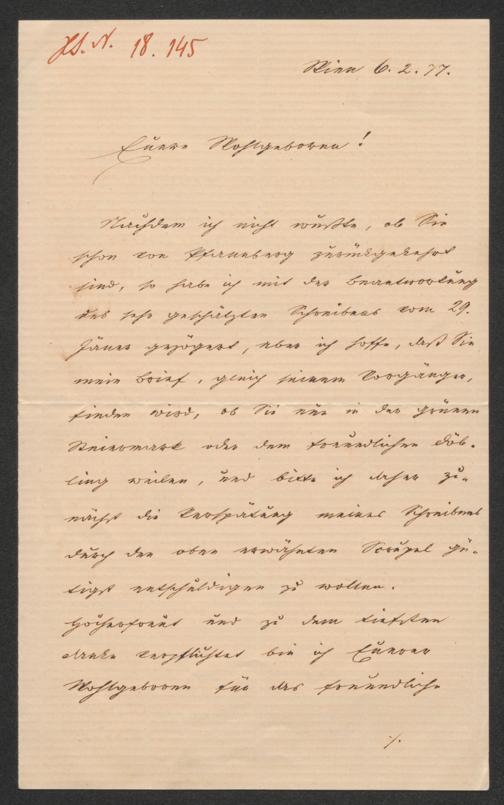 H.S. N. 18.145
Wien 6.2.77.
Euere Wohlgeboren!
Nachdem ich nicht wußte, ob Sie
schon von Pfannberg zurückgekehrt
sind, so habe ich mit der Beantwortung
des sehr geschätzten Schreibens vom 29.
Jäner gezögert, aber ich hoffe, daß Sie
mein Brief, gleich seinem Vorgänger,
finden wird, ob Sie nun in der grünen
Steiermark oder dem freundlichen Döb-
ling weilen, und bitte ich daher zu-
nächst die Verspätung meines Schreibens
durch den oben erwähnten Scrupel gü-
tigst entschuldigen zu wollen.
Hocherfreut und zu dem tiefsten
Danke verpflichtet bin ich Euerer
Wohlgeboren für das freundliche
./.